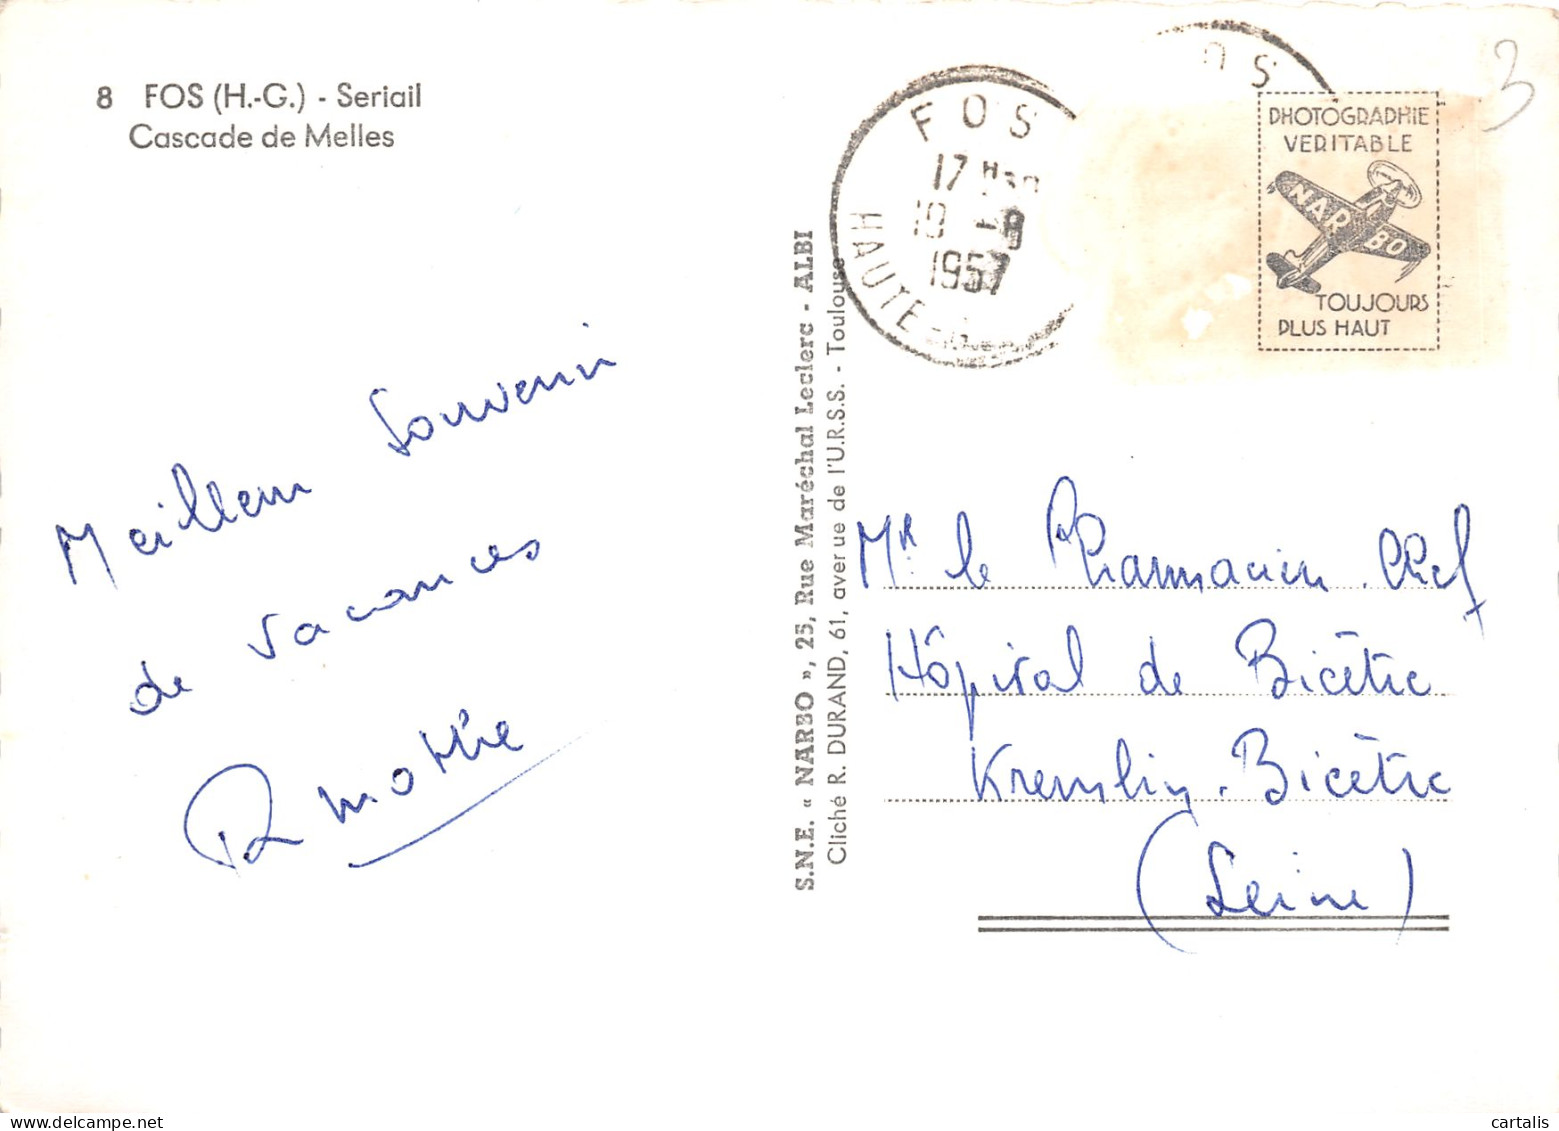 8 FOS (H.-G.) - Seriail
Cascade de Melles
Meilleur Souvenir
de vacances
R Mothe
S.N.E. « NARBO », 25, Rue Maréchal Leclerc - ALBI
Cliché R. DURAND, 61, avenue de l'U.R.S.S. - Toulouse
FOS
17 H30
19 -8
1957
HAUTE-
OS
PHOTOGRAPHIE
VERITABLE
NARBO
TOUJOURS
PLUS HAUT
3
Mr le Pharmacien Chef
Hôpital de Bicêtre
Kremlin-Bicêtre
(Seine)
cartalis